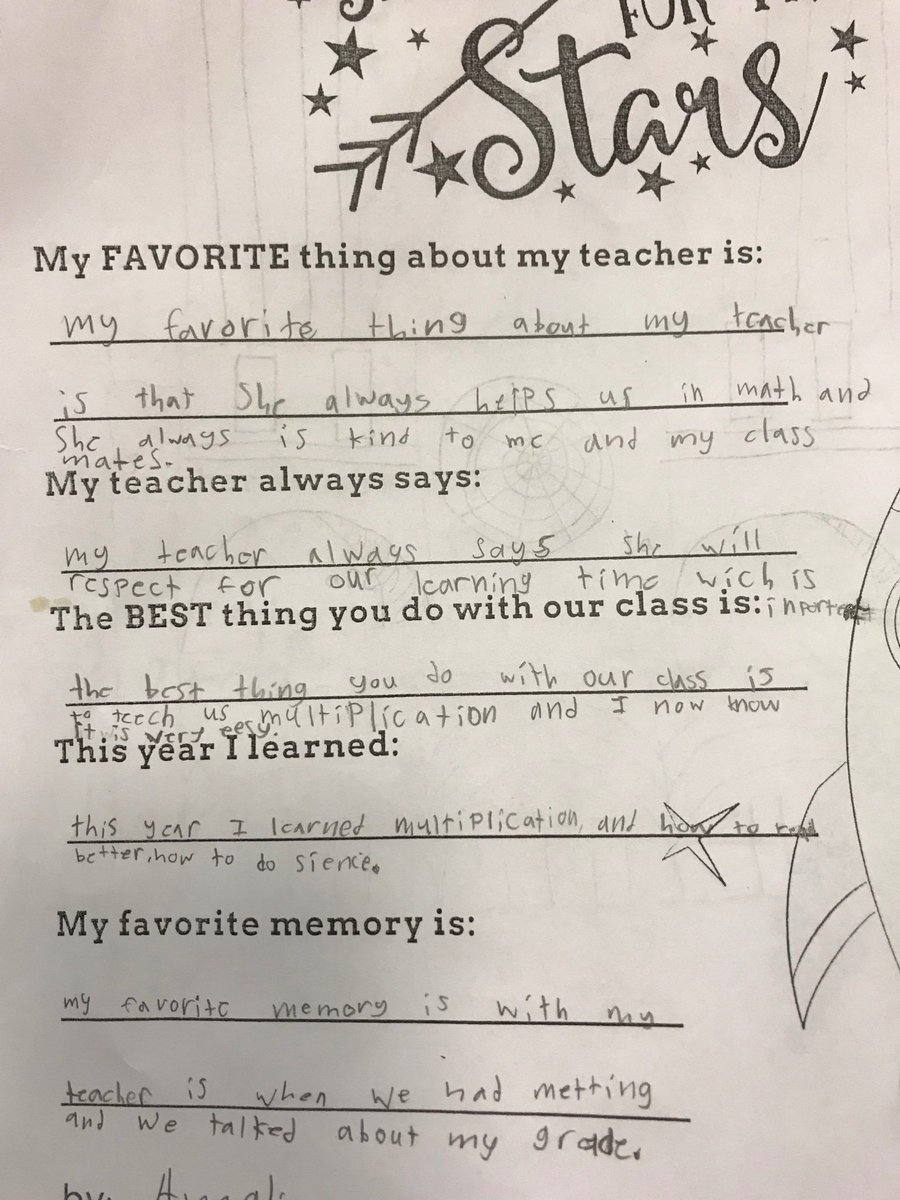 FOR
Stars
My FAVORITE thing about my teacher is:
my favorite thing about my teacher
is that She always helps us in math and
She always is kind to me and my class
mates.
My teacher always says:
my teacher always says she will
respect for our learning time wich is
The BEST thing you do with our class is: inportent
the best thing you do with our class is
to teech us multiplication and I now know
It is very eesy.
This year I learned:
this year I learned multiplication, and how to read
better, how to do sience.
My favorite memory is:
my favorite memory is with my
teacher is when we had metting
and we talked about my grade.
by: